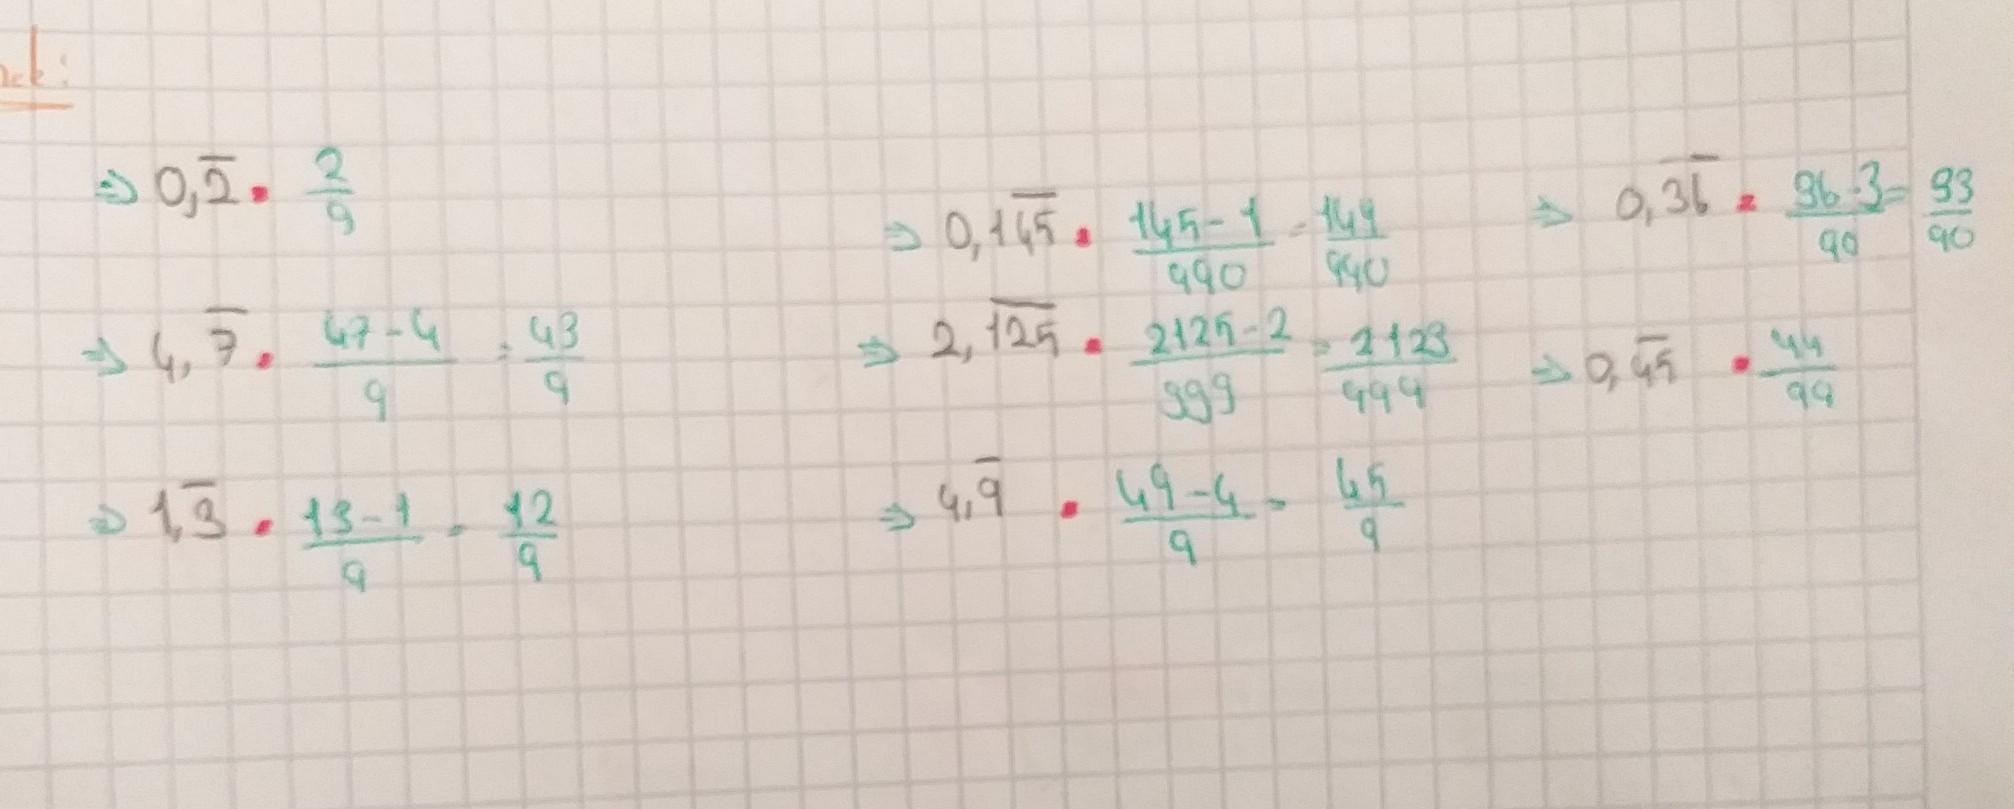 ⇒ 0,2̅ = 2/9
⇒ 4,7̅ = (47-4)/9 = 43/9
⇒ 1,3̅ = (13-1)/9 = 12/9
⇒ 0,14̅5̅ = (145-1)/990 = 144/990
⇒ 2,1̅2̅5̅ = (2125-2)/999 = 2123/999
⇒ 4,9̅ = (49-4)/9 = 45/9
⇒ 0,3̅6̅ = (96-3)/90 = 93/90
⇒ 0,4̅5̅ = 44/99